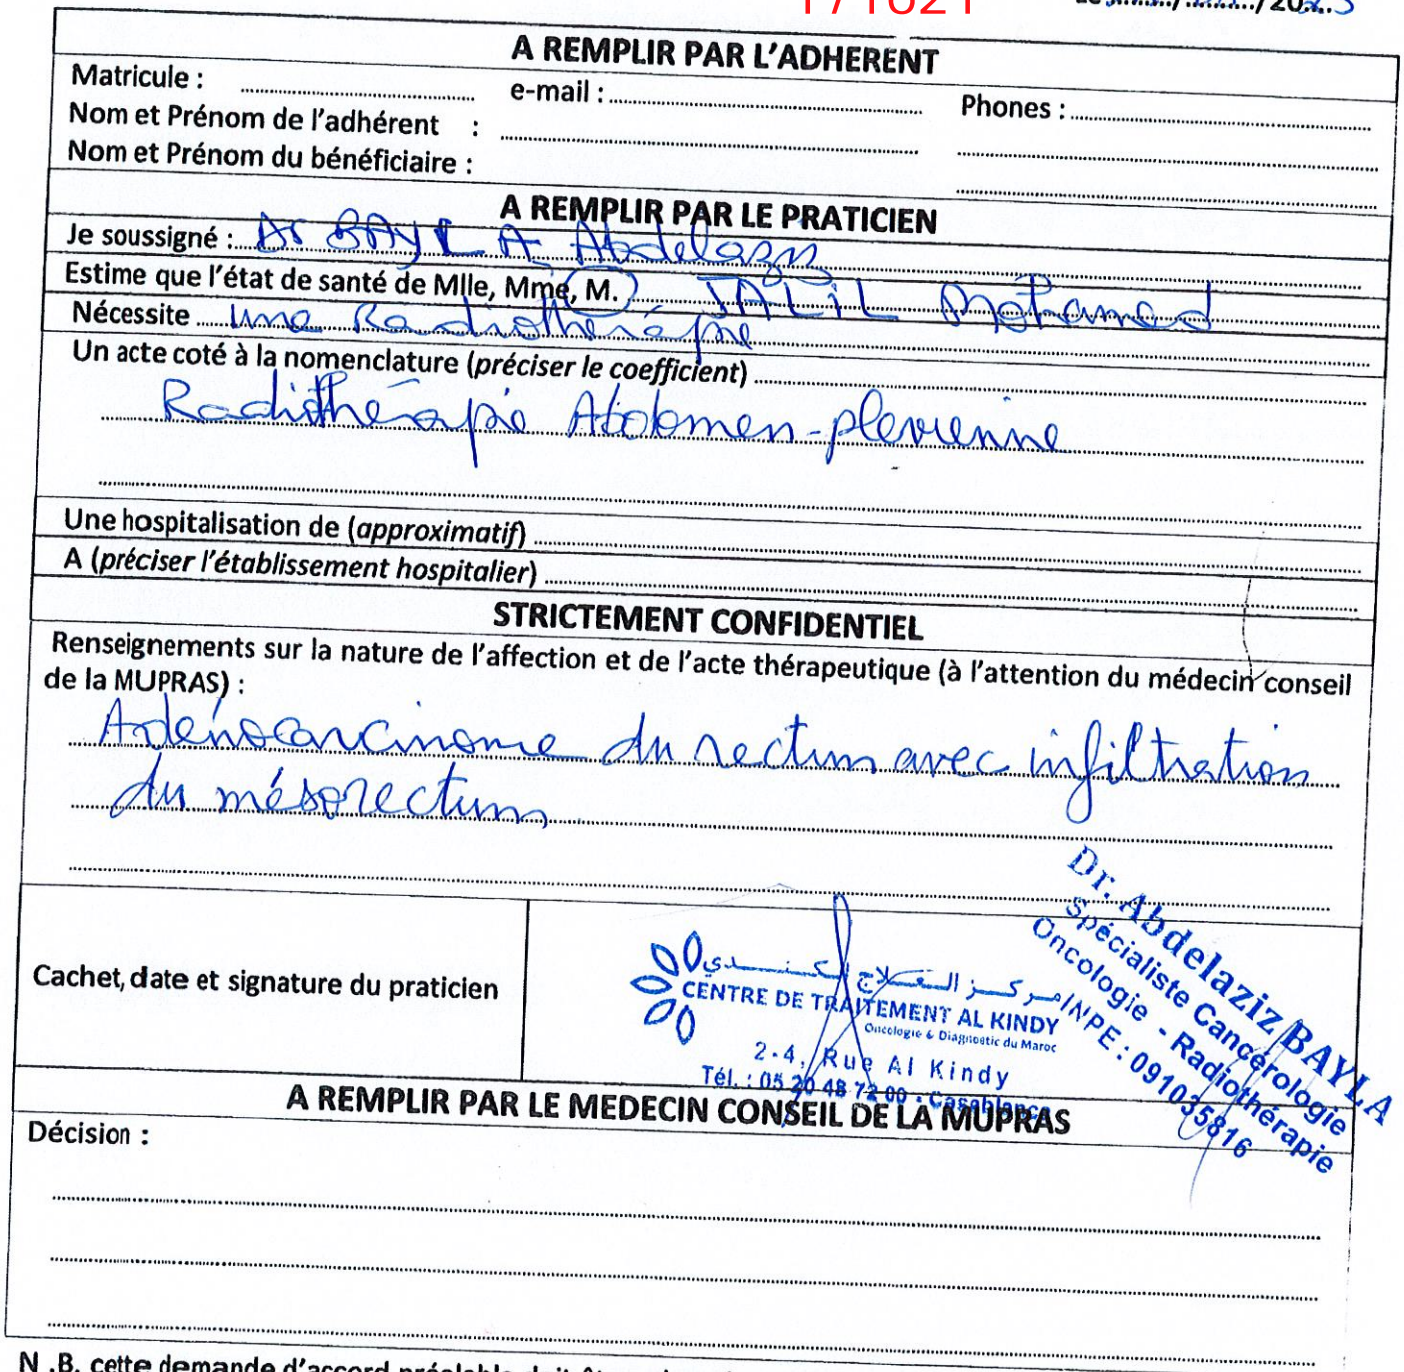 171621
/20
A REMPLIR PAR L'ADHERENT
Matricule : e-mail : Phones :
Nom et Prénom de l'adhérent :
Nom et Prénom du bénéficiaire :
A REMPLIR PAR LE PRATICIEN
Je soussigné : Dr BAYLA Abdelaziz
Estime que l'état de santé de Mlle, Mme, M. JALIL Mohamed
Nécessite une Radiothérapie
Un acte coté à la nomenclature (préciser le coefficient)
Radiothérapie Abdomen-plevienne
Une hospitalisation de (approximatif)
A (préciser l'établissement hospitalier)
STRICTEMENT CONFIDENTIEL
Renseignements sur la nature de l'affection et de l'acte thérapeutique (à l'attention du médecin conseil
de la MUPRAS) :
Adénocarcinome du rectum avec infiltration
du mésorectum
Cachet, date et signature du praticien
مركز العلاج الكندي
CENTRE DE TRAITEMENT AL KINDY
Oncologie & Diagnostic du Maroc
2-4, Rue Al Kindy
Tél. : 05 20 48 72 00 - Casablanca
Dr. Abdelaziz BAYLA
Spécialiste Cancérologie
Oncologie - Radiothérapie
INPE : 091035816
A REMPLIR PAR LE MEDECIN CONSEIL DE LA MUPRAS
Décision :
N .B. cette demande d'accord préalable doit être